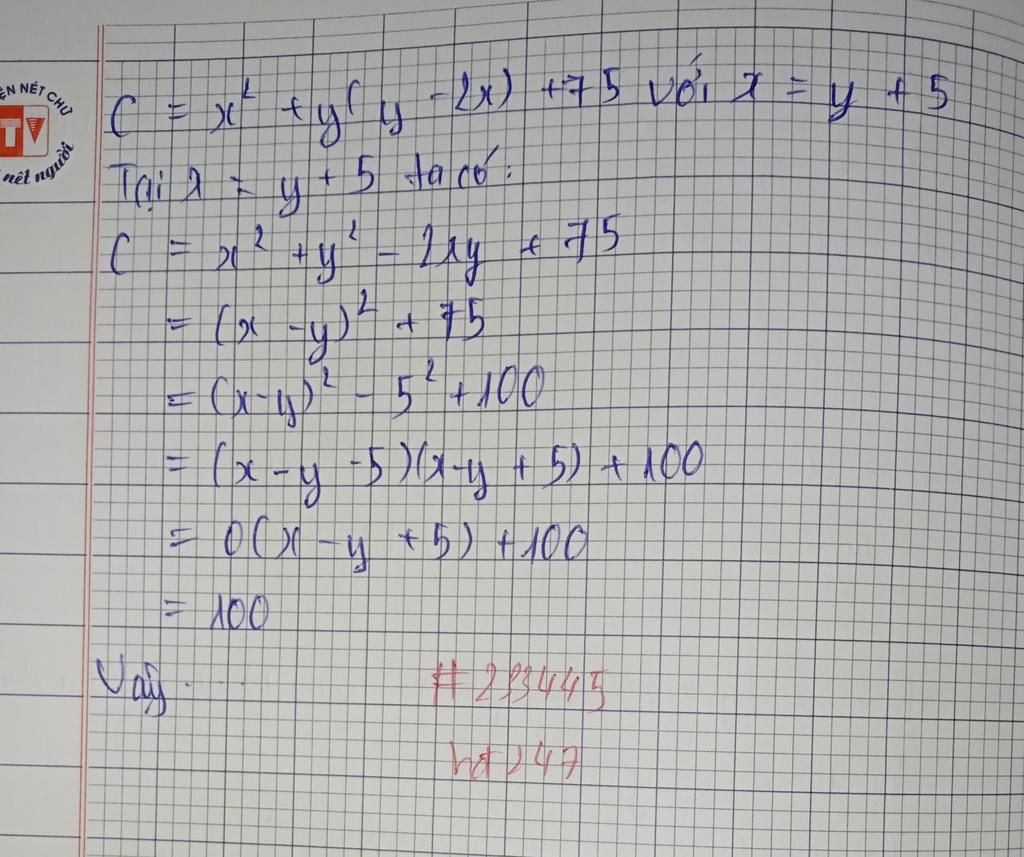 ỆN NÉT CHỮ
TV
nết người
C = x² + y(y - 2x) + 75 với x = y + 5
Tại x = y + 5 ta có:
C = x² + y² - 2xy + 75
= (x - y)² + 75
= (x - y)² - 5² + 100
= (x - y - 5)(x - y + 5) + 100
= 0(x - y + 5) + 100
= 100
Vậy.....
#233445
hđ247